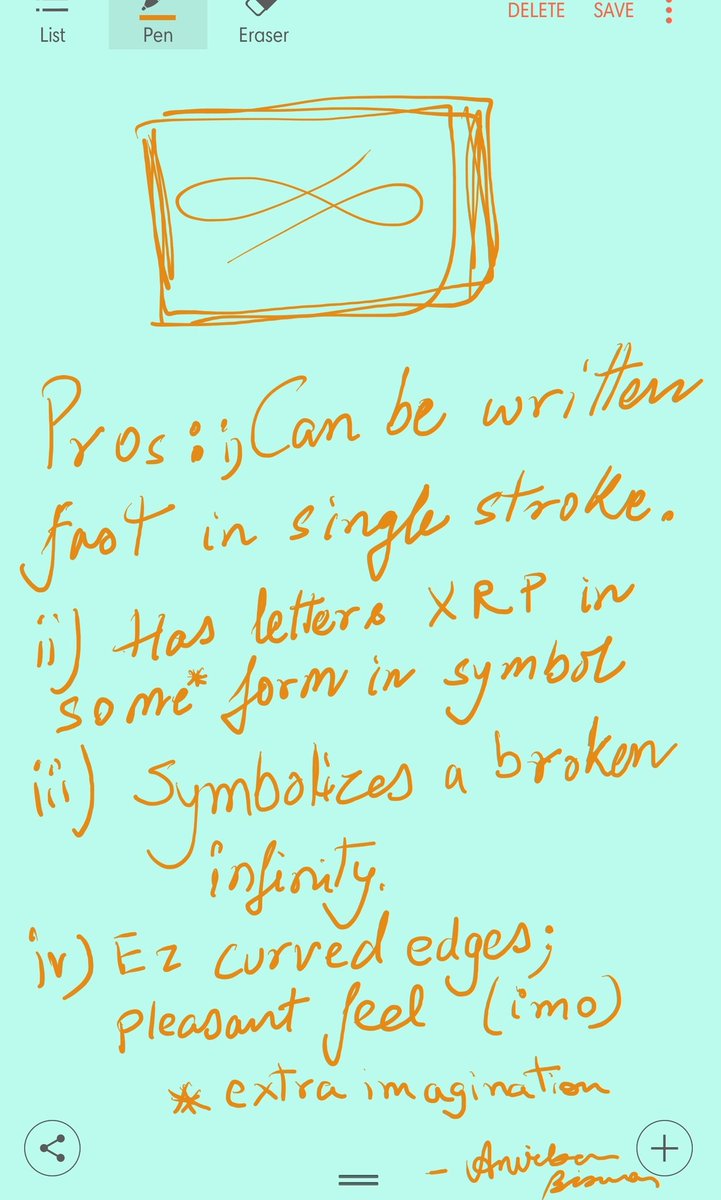 DELETE SAVE
List Pen Eraser
Pros: i) Can be written
fast in single stroke.
ii) Has letters XRP in
some* form in symbol
iii) Symbolizes a broken
infinity.
iv) Ez curved edges;
pleasant feel (imo)
* extra imagination
- Anirban
Biswas